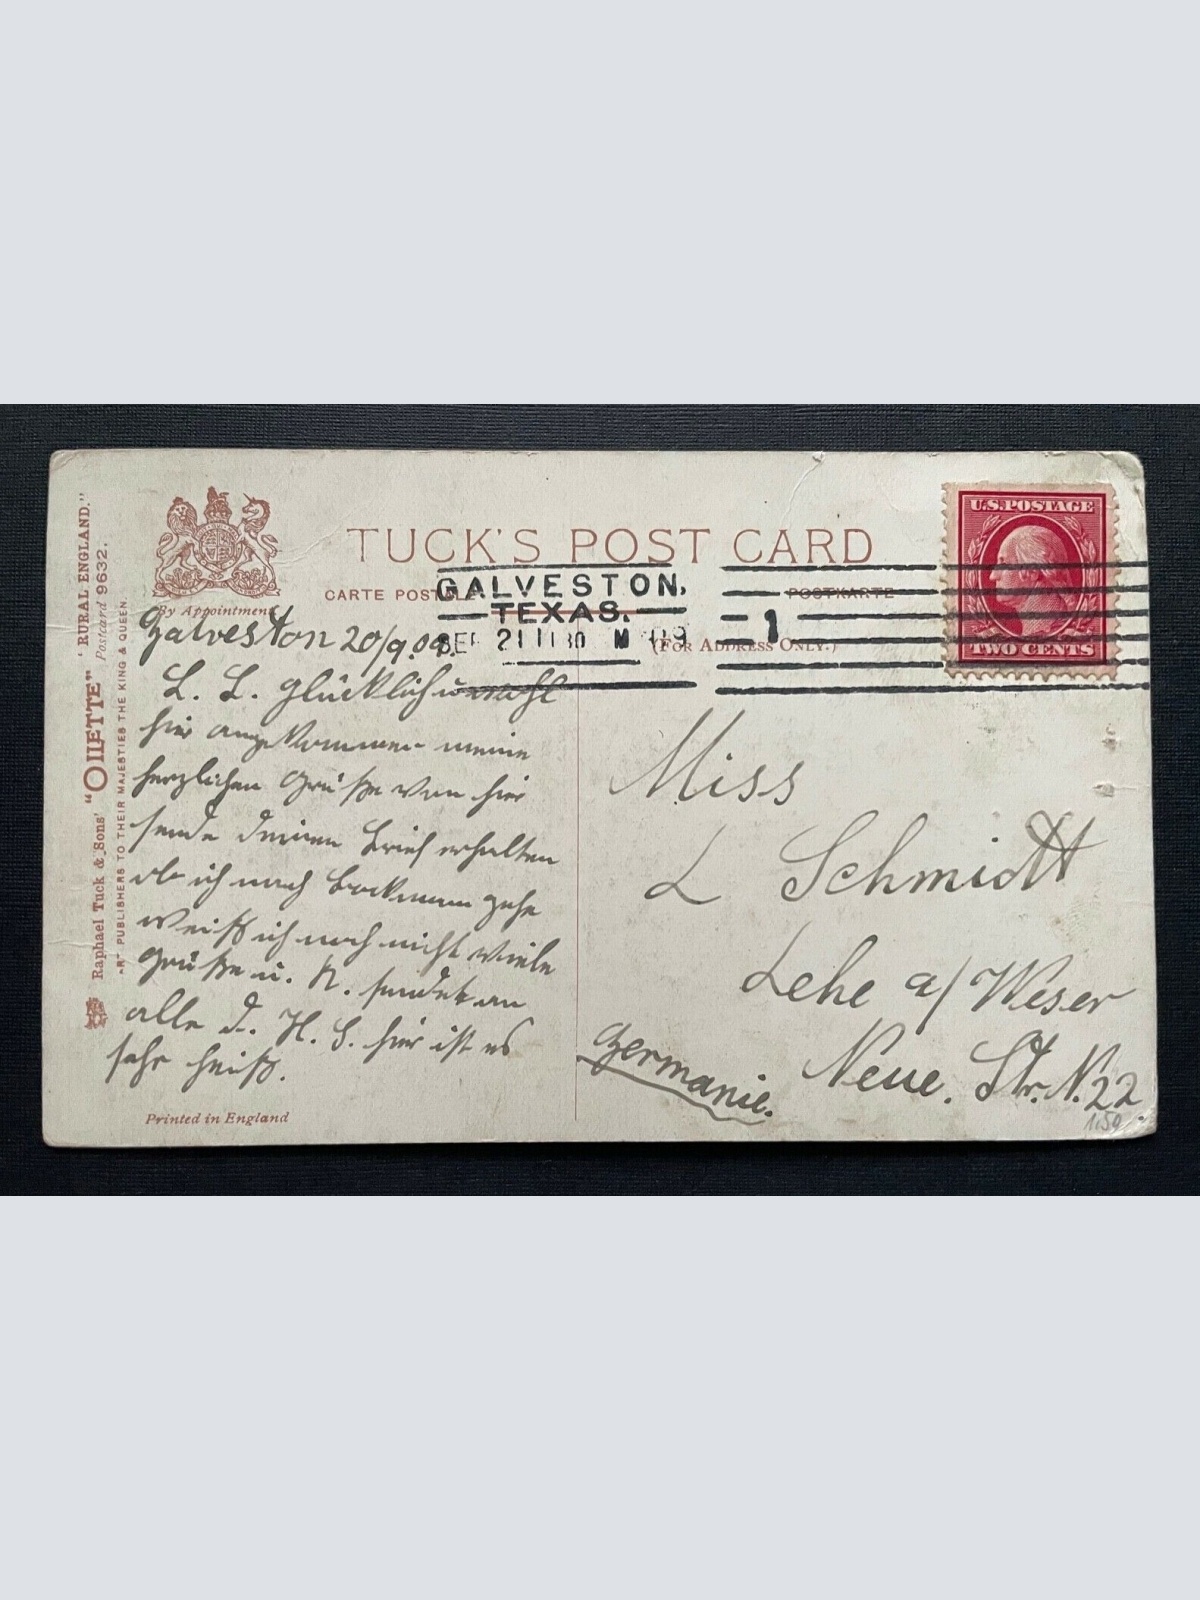 TUCK'S POST CARD
CARTE POSTALE
POSTKARTE
(FOR ADDRESS ONLY.)
By Appointment
Raphael Tuck & Sons' "OILETTE" 'RURAL ENGLAND."
Postcard 9632.
"ART PUBLISHERS TO THEIR MAJESTIES THE KING & QUEEN.
GALVESTON,
TEXAS.
SEP 21 11 30 M '09
1
U.S. POSTAGE
TWO CENTS
Galveston 20/9.09.
L. L. glücklich u wohl
hier angekommen meine
herzlichen Grüße von hier
sende deinen Brief erhalten
ob ich nach gehe
weiß ich noch nicht viele
Grüße u. K. sendet an
alle D. H. S. hier ist es
sehr heiß.
Miss
L Schmidt
Lehe a/Weser
Neue. Str. N. 22.
Germanie.
1.50
Printed in England